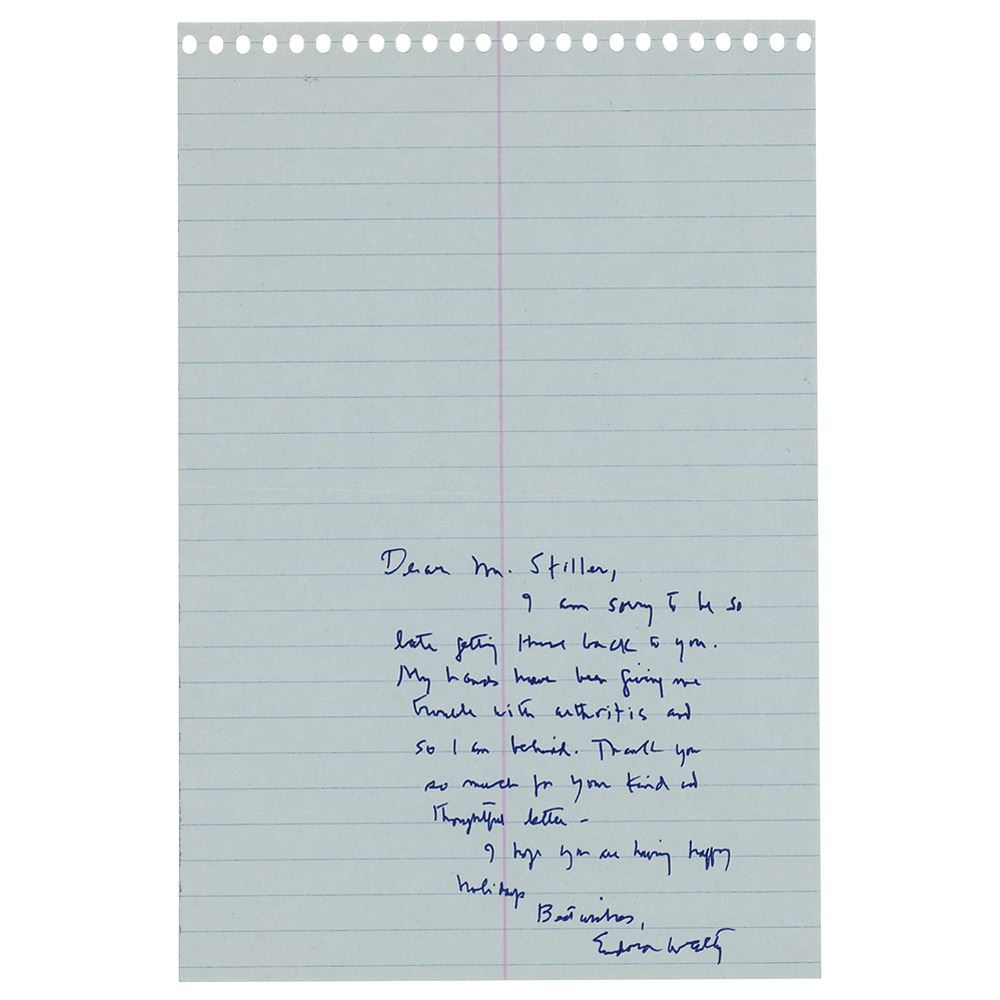 Dear Mr. Stiller,
I am sorry to be so
late getting these back to you.
My hands have been giving me
trouble with arthritis and
so I am behind. Thank you
so much for your kind and
thoughtful letter –
I hope you are having happy
holidays
Best wishes,
Eudora Welty